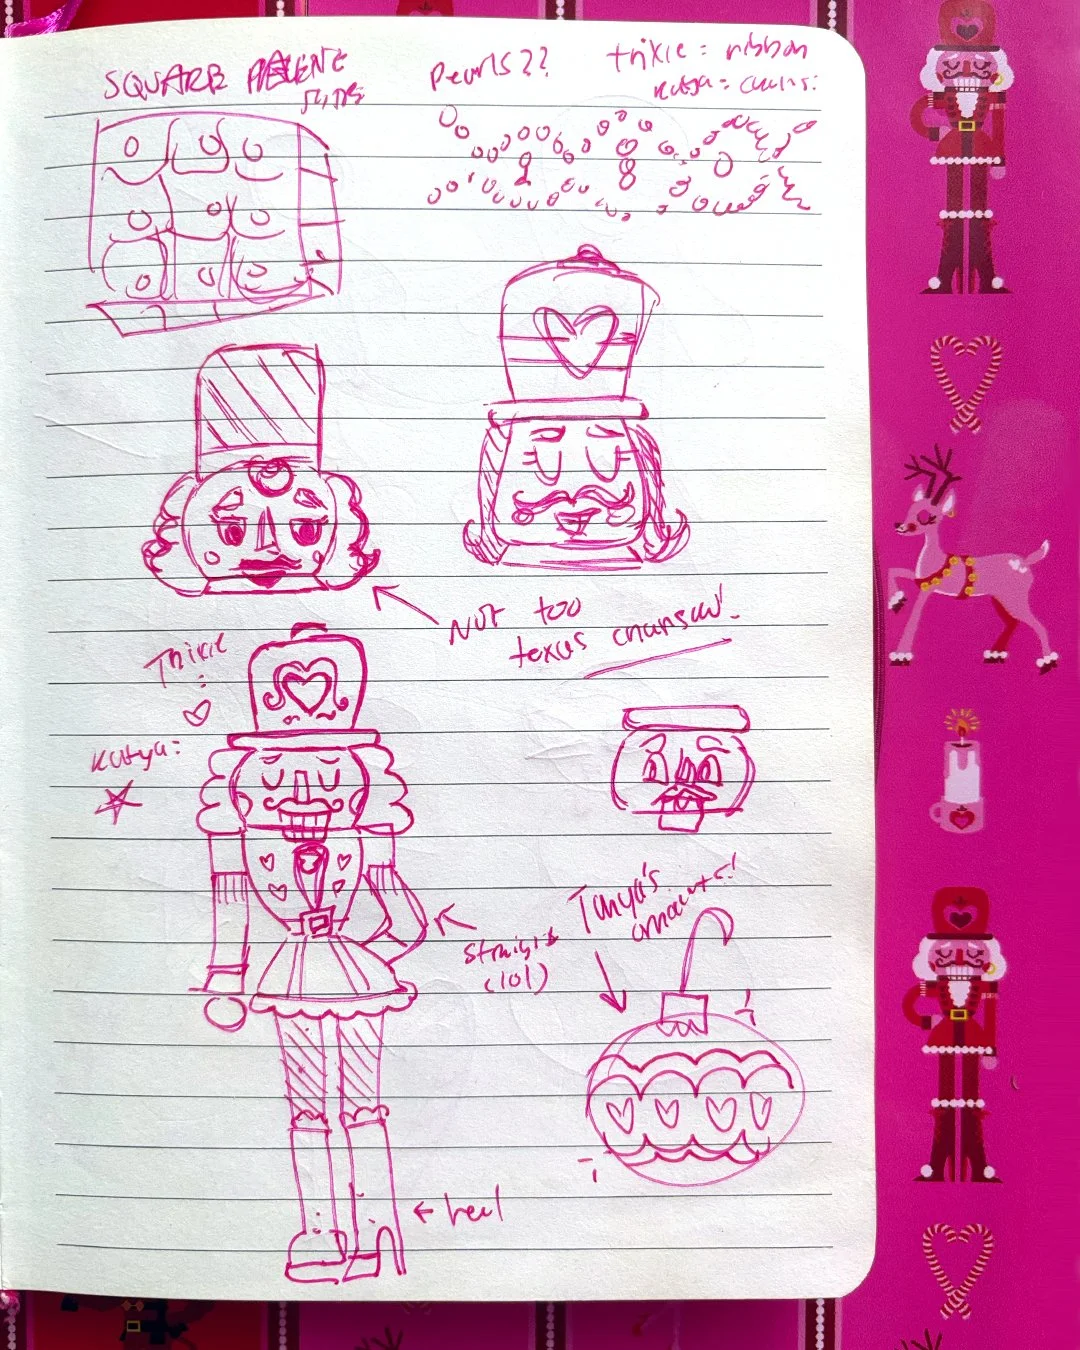 SQUARE
Pearls??
trixie = ribbon
katya = chains:
NOT too
texas chainsaw!
Trixie
:
Katya:
straight
(lol)
Tanya's
ornaments!
← heel